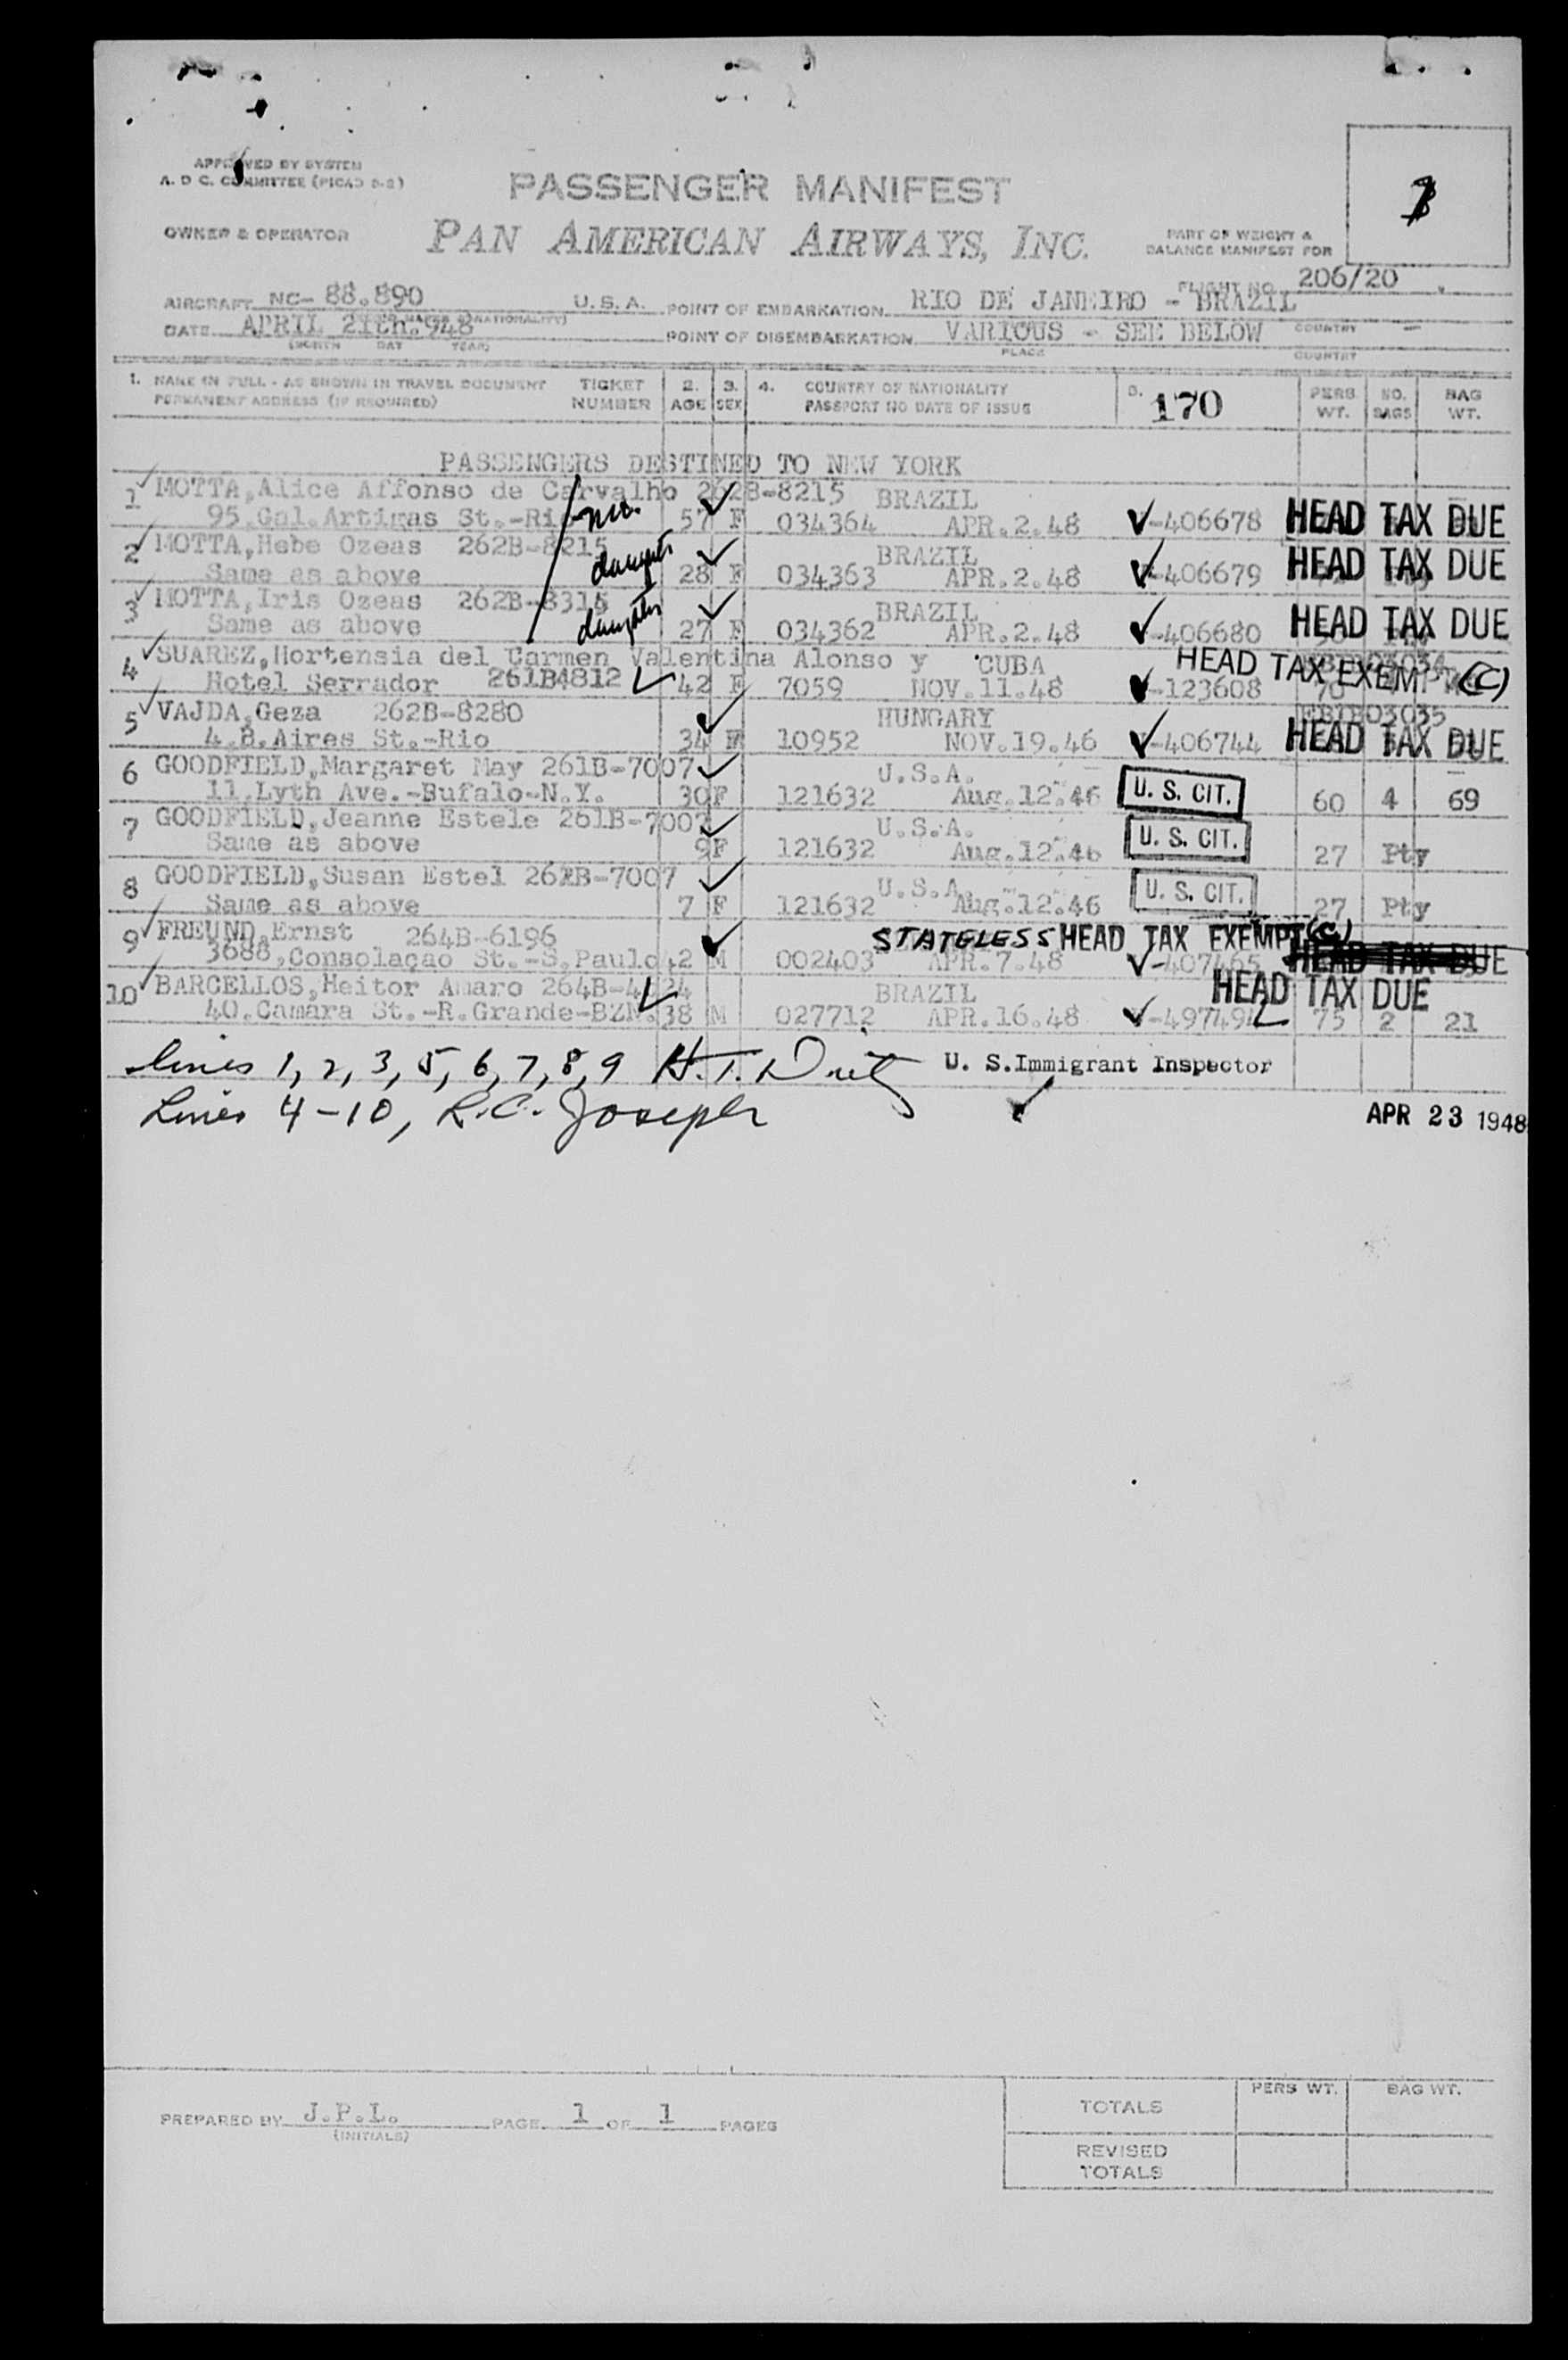 APPROVED BY SYSTEM
A. D C. COMMITTEE (PICAO D-2)
PASSENGER MANIFEST
OWNER & OPERATOR
PAN AMERICAN AIRWAYS, INC.
PART OF WEIGHT &
BALANCE MANIFEST FOR
FLIGHT NO. 206/20
AIRCRAFT NC- 88.890 U.S.A. POINT OF EMBARKATION RIO DE JANEIRO - BRAZIL
DATE APRIL 21th.948 POINT OF DISEMBARKATION VARIOUS - SEE BELOW COUNTRY
(MONTH DAY YEAR) PLACE COUNTRY
1. NAME IN FULL - AS SHOWN IN TRAVEL DOCUMENT TICKET 2. 3. 4. COUNTRY OF NATIONALITY 5. 170 PERS. NO. BAG
PERMANENT ADDRESS (IF REQUIRED) NUMBER AGE SEX PASSPORT NO DATE OF ISSUE WT. BAGS WT.
PASSENGERS DESTINED TO NEW YORK
1 MOTTA,Alice Affonso de Carvalho 262B-8215 BRAZIL
95.Gal.Artigas St.-Rio mo. 57 F 034364 APR.2.48 V-406678 HEAD TAX DUE
2 MOTTA,Hebe Ozeas 262B-8215 BRAZIL
Same as above daughter 28 F 034363 APR.2.48 V-406679 HEAD TAX DUE
3 MOTTA,Iris Ozeas 262B-8315 BRAZIL
Same as above daughter 27 F 034362 APR.2.48 V-406680 HEAD TAX DUE
4 SUAREZ,Hortensia del Carmen Valentina Alonso y CUBA HEAD TAX EXEMPT (C)
Hotel Serrador 261B4812 42 F 7059 NOV.11.48 V-123608 70
5 VAJDA,Geza 262B-8280 HUNGARY EBIB03035
4.B.Aires St.-Rio 34 10952 NOV.19.46 V-406744 HEAD TAX DUE
6 GOODFIELD,Margaret May 261B-7007 U.S.A.
11.Lyth Ave.-Bufalo-N.Y. 30 F 121632 Aug.12.46 U. S. CIT. 60 4 69
7 GOODFIELD,Jeanne Estele 261B-7007 U.S.A.
Same as above 9 F 121632 Aug.12.46 U. S. CIT. 27 Pty
8 GOODFIELD,Susan Estel 261B-7007 U.S.A.
Same as above 7 F 121632 Aug.12.46 U. S. CIT. 27 Pty
9 FREUND,Ernst 264B-6196 STATELESS HEAD TAX EXEMPT (C)
3688,Consolaçao St.-S.Paulo 42 M 002403 APR.7.48 V-407465 HEAD TAX DUE
10 BARCELLOS,Heitor Amaro 264B-4124 BRAZIL HEAD TAX DUE
40.Camara St.-R.Grande-BZN. 38 M 027712 APR.16.48 V-497494 75 2 21
lines 1, 2, 3, 5, 6, 7, 8, 9 H.T. U. S.Immigrant Inspector
Lines 4-10, R.C. Joseph
APR 23 1948
PREPARED BY J.P.L. PAGE 1 OF 1 PAGES
(INITIALS)
PERS WT. BAG WT.
TOTALS
REVISED
TOTALS